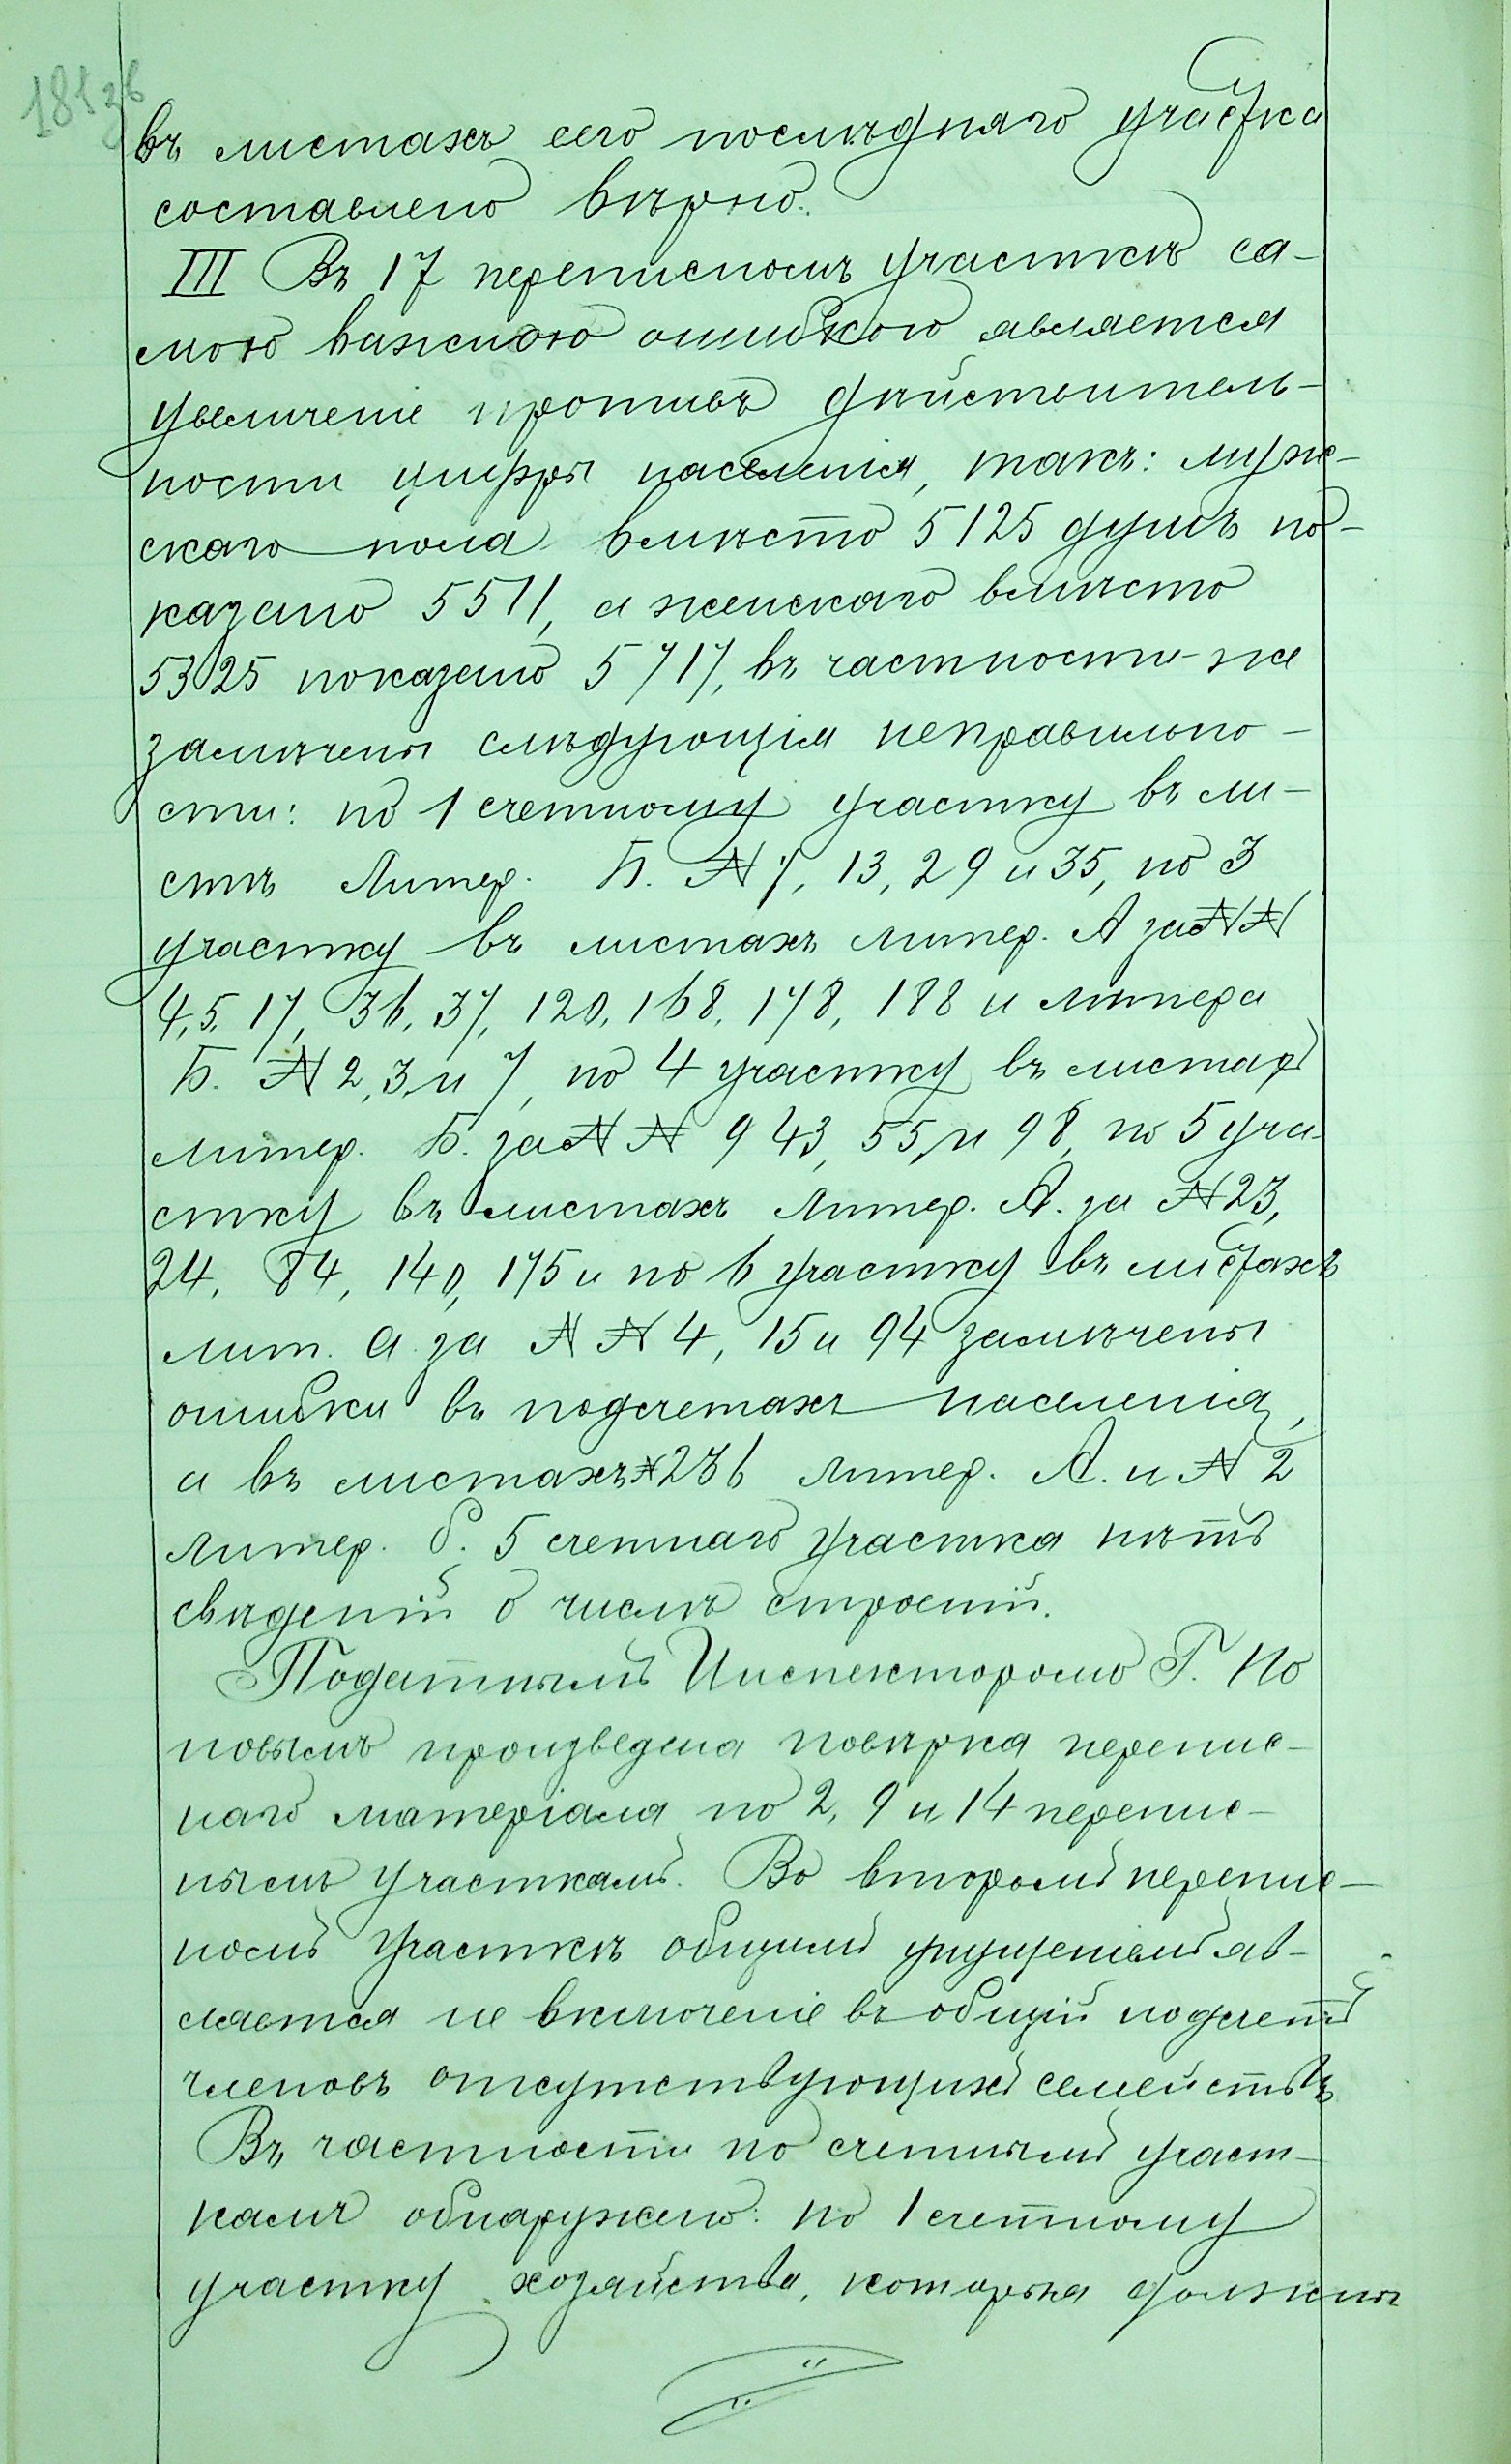 181 зв
въ листахъ сего послѣдняго участка
составлено вѣрно.
III Въ 17 переписномъ участкѣ са-
мою важною ошибкою является
увеличеніе противъ дѣйствитель-
ности цифры населенія, такъ: муж-
скаго пола вмѣсто 5125 душъ по-
казано 5511, а женскаго вмѣсто
5325 показано 5717, въ частности-же
замѣчены слѣдующія неправильно-
сти: по 1 счетному участку въ ли-
стѣ Литер. Б. № 7, 13, 29 и 35, по 3
участку въ листахъ литер. А за №№
4, 5, 17, 36, 37, 120, 168, 178, 188 и литера
Б. № 2, 3 и 7, по 4 участку въ листах
литер. Б. за №№ 9 43, 55, и 98, по 5 уча-
стку въ листахъ Литер. А. за № 23,
24, 84, 140, 175 и по 6 участку въ листахъ
лит. а. за №№ 4, 15 и 94 замѣчены
ошибки въ подсчетахъ населенія,
а въ листахъ № 236 литер. А. и № 2
литер. б. 5 счетнаго участка нѣтъ
свѣдѣній о числѣ строеній.
Податнымъ Инспекторомъ Г. По
повымъ произведена повѣрка перепис-
наго матеріала по 2, 9 и 14 перепис-
нымъ участкамъ. Во второмъ перепис-
номъ участкѣ общимъ упущеніемъ яв-
ляется не включеніе въ общій подсчетъ
членовъ отсутствующихъ семействъ
Въ частности по счетнымъ участ-
камъ обнаружено: по 1 счетному
участку хозяйства, которыя должны